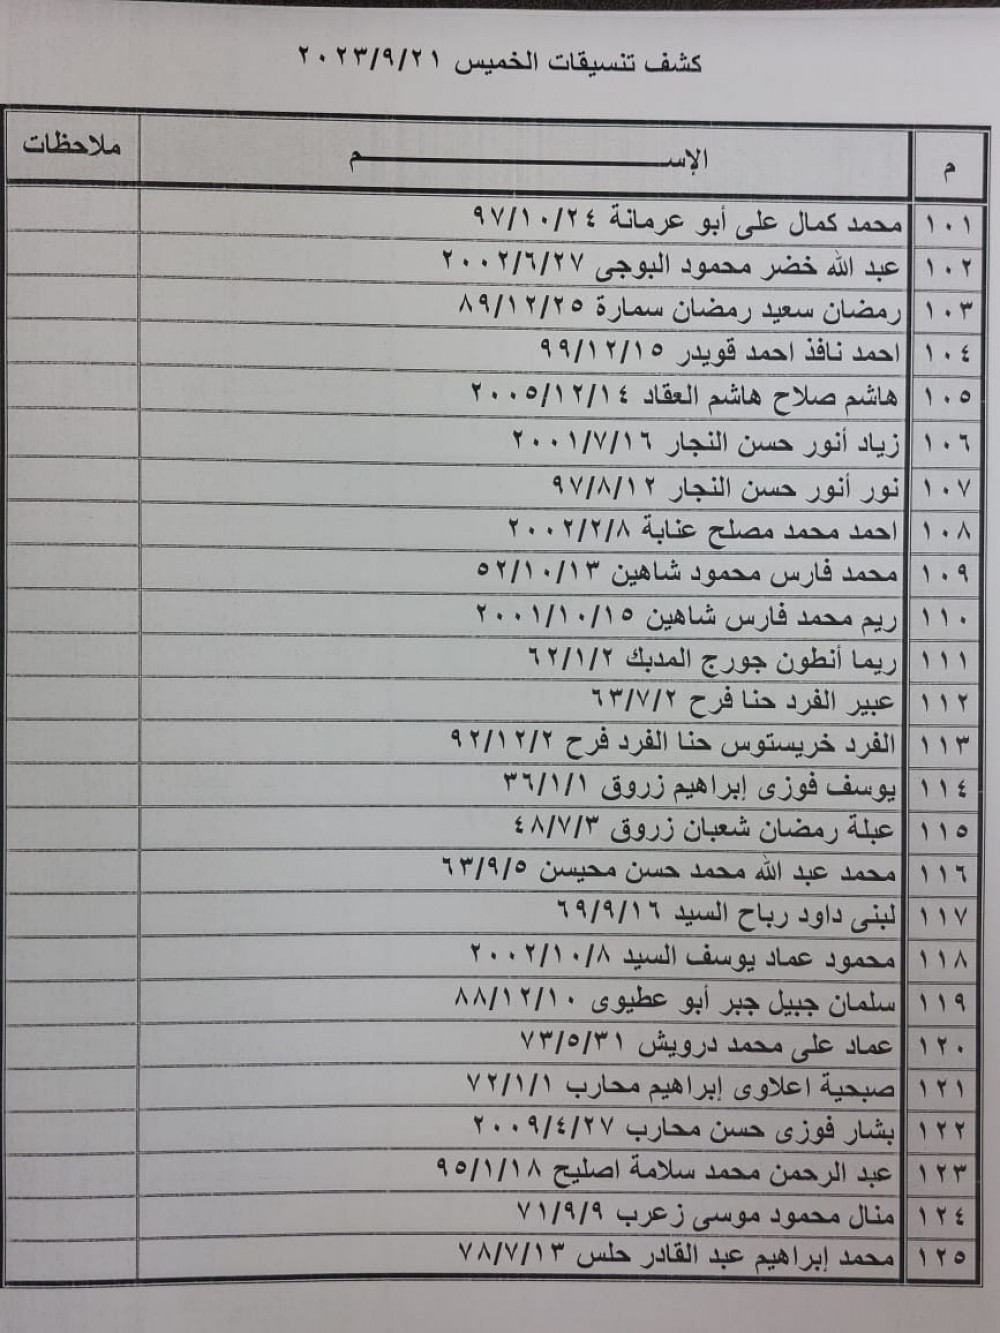 كشف تنسيقات الخميس ٢٠٢٣/٩/٢١
م الإســـــــــم ملاحظات
١٠١ محمد كمال على أبو عرمانة ٩٧/١٠/٢٤
١٠٢ عبد الله خضر محمود البوجى ٢٠٠٢/٦/٢٧
١٠٣ رمضان سعيد رمضان سمارة ٨٩/١٢/٢٥
١٠٤ احمد نافذ احمد قويدر ٩٩/١٢/١٥
١٠٥ هاشم صلاح هاشم العقاد ٢٠٠٥/١٢/١٤
١٠٦ زياد أنور حسن النجار ٢٠٠١/٧/١٦
١٠٧ نور أنور حسن النجار ٩٧/٨/١٢
١٠٨ احمد محمد مصلح عنابة ٢٠٠٢/٢/٨
١٠٩ محمد فارس محمود شاهين ٥٢/١٠/١٣
١١٠ ريم محمد فارس شاهين ٢٠٠١/١٠/١٥
١١١ ريما أنطون جورج المدبك ٦٢/١/٢
١١٢ عبير الفرد حنا فرح ٦٣/٧/٢
١١٣ الفرد خريستوس حنا الفرد فرح ٩٢/١٢/٢
١١٤ يوسف فوزى إبراهيم زروق ٣٦/١/١
١١٥ عبلة رمضان شعبان زروق ٤٨/٧/٣
١١٦ محمد عبد الله محمد حسن محيسن ٦٣/٩/٥
١١٧ لبنى داود رباح السيد ٦٩/٩/١٦
١١٨ محمود عماد يوسف السيد ٢٠٠٢/١٠/٨
١١٩ سلمان جبيل جبر أبو عطيوى ٨٨/١٢/١٠
١٢٠ عماد على محمد درويش ٧٣/٥/٣١
١٢١ صبحية اعلاوى إبراهيم محارب ٧٢/١/١
١٢٢ بشار فوزى حسن محارب ٢٠٠٩/٤/٢٧
١٢٣ عبد الرحمن محمد سلامة اصليح ٩٥/١/١٨
١٢٤ منال محمود موسى زعرب ٧١/٩/٩
١٢٥ محمد إبراهيم عبد القادر حلس ٧٨/٧/١٣